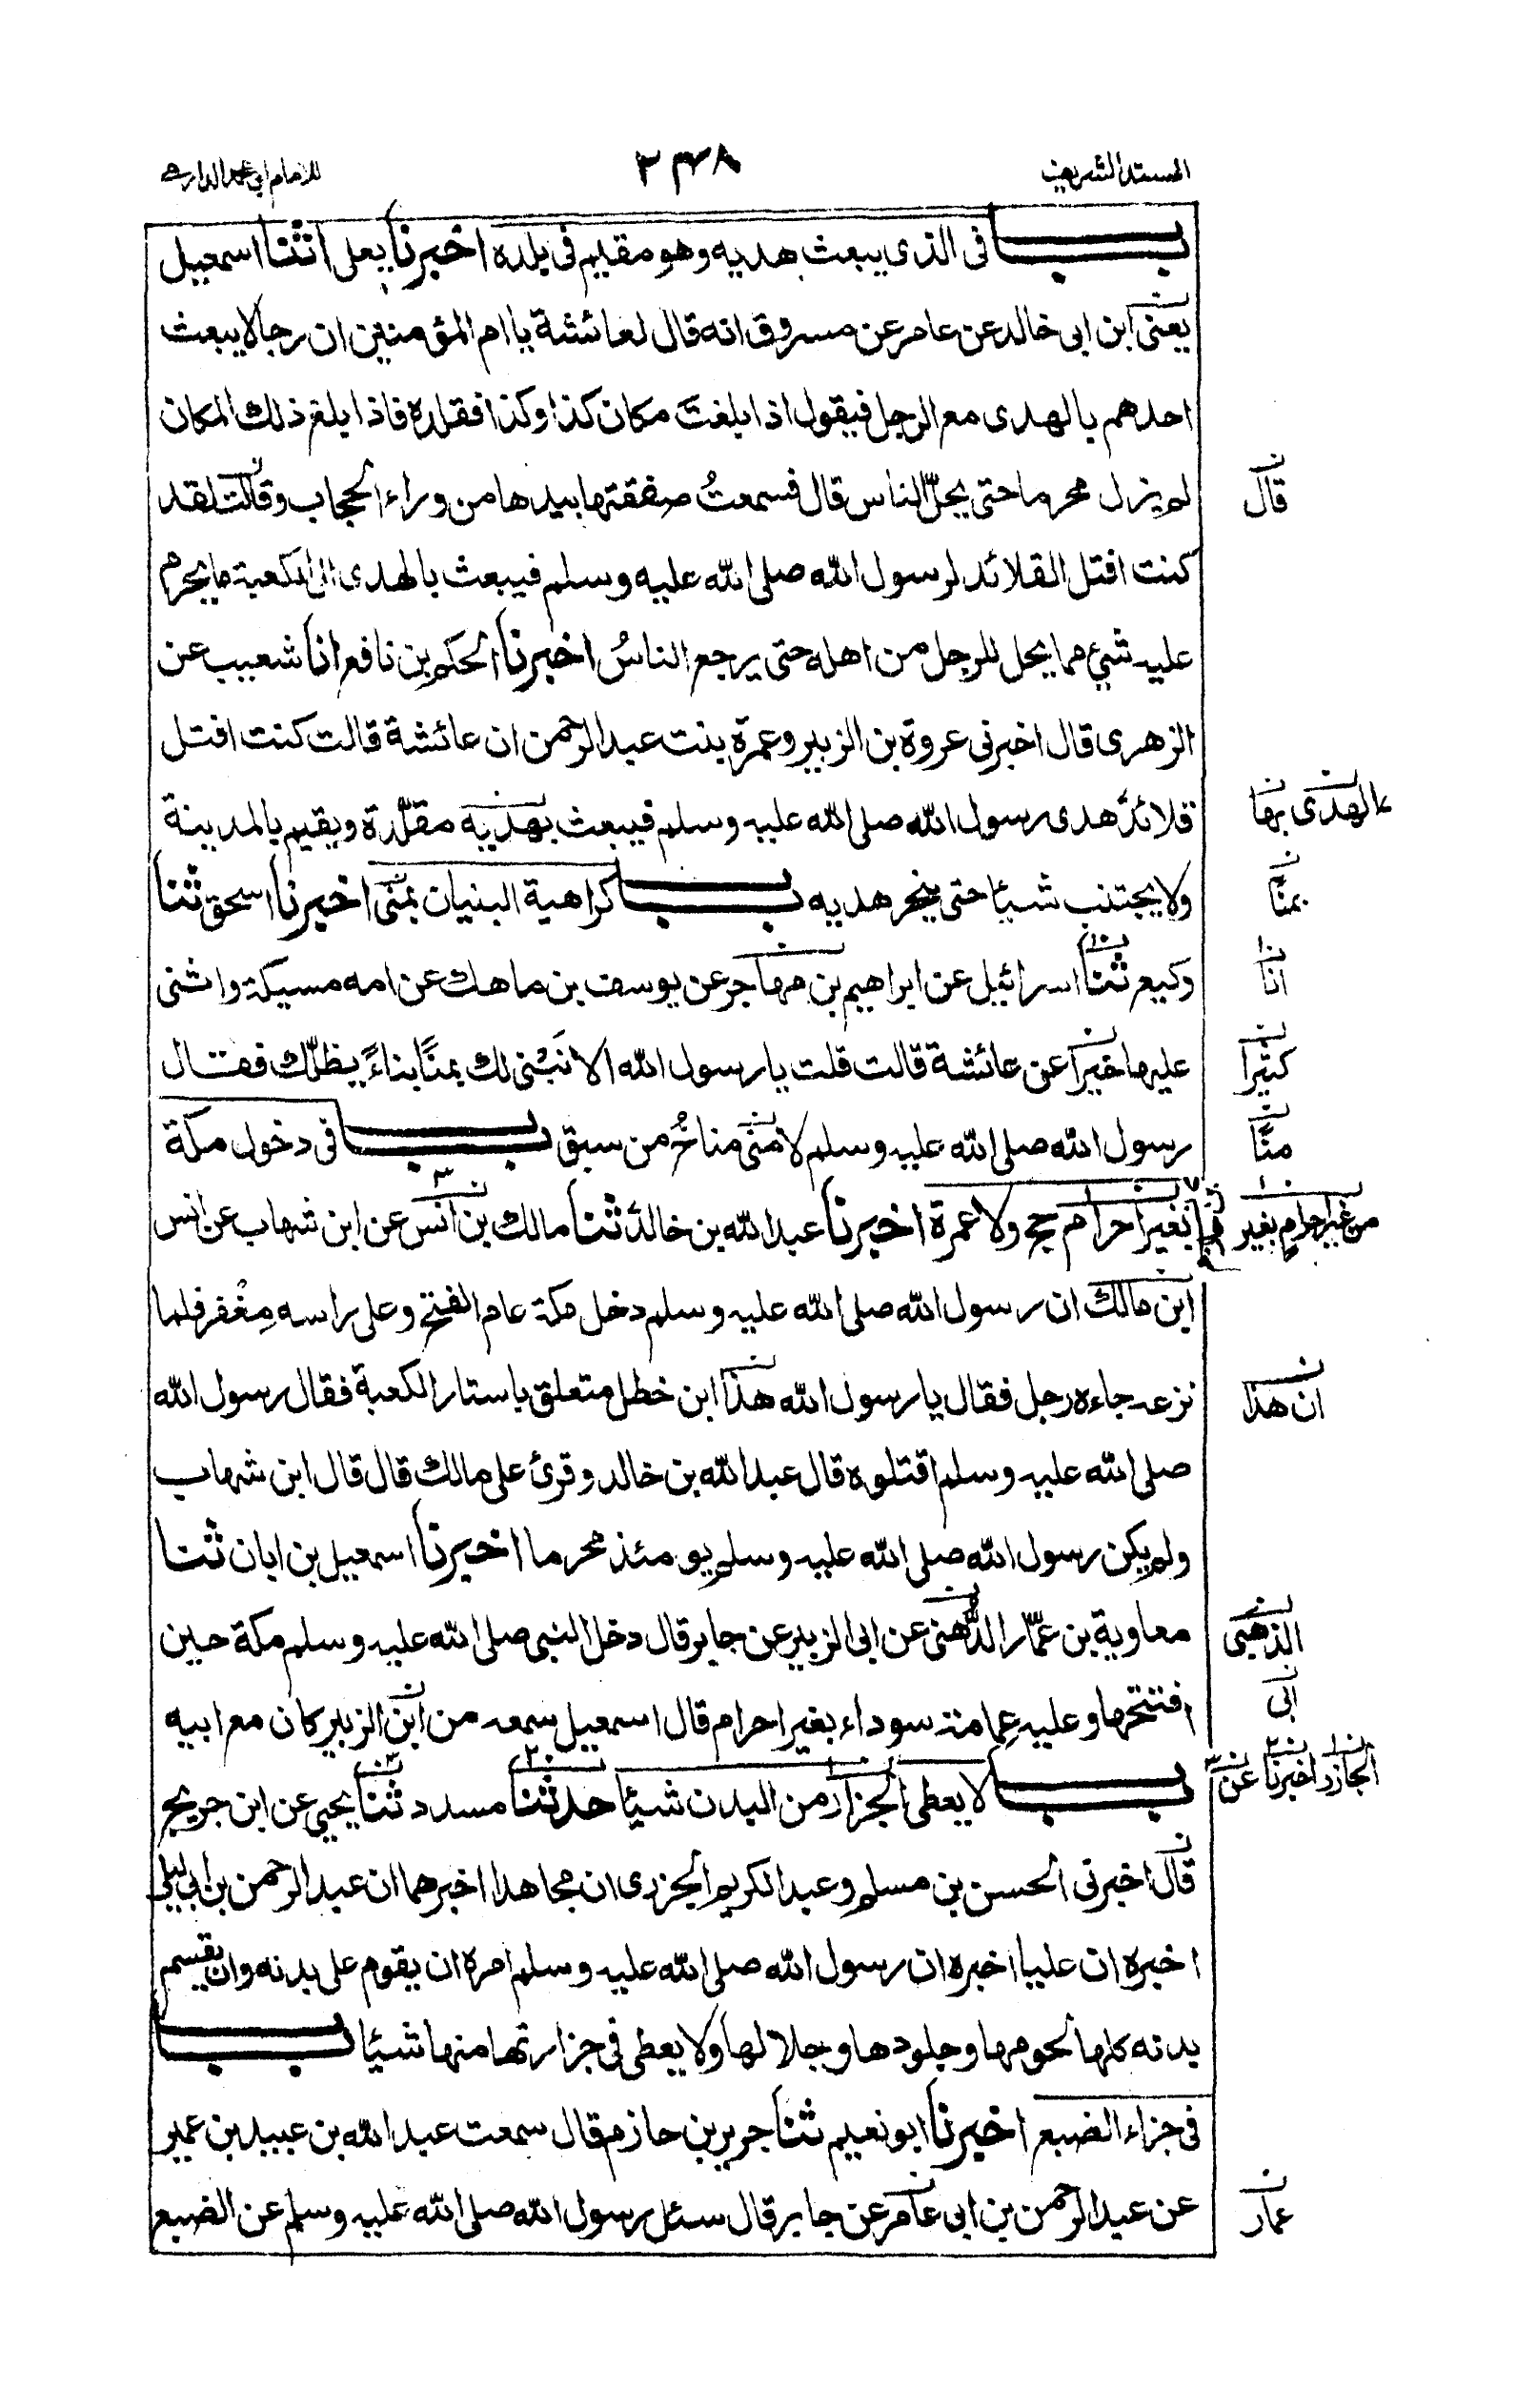 المسند الشريف ٢٤٨ للامام ابي محمد الدارمي
باب في الذى يبعث هديه وهو مقيم فى بلده اخبرنا يعلى اثنا اسمعيل
يعنى ابن ابى خالد عن عامر عن مسروق انه قال لعائشة يا ام المؤمنين ان رجالا يبعث
احدهم بالهدى مع الرجل فيقول اذا بلغت مكان كذا وكذا فقلده فاذا بلغ ذلك المكان
لم يزل محرما حتى يحلّ الناس قال فسمعتُ صفقتها بيدها من وراء الحجاب وقالت لقد
قال
كنت افتل القلائد لرسول الله صلى الله عليه وسلم فيبعث بالهدى الى الكعبة ما يحرم
عليه شئ مما يحل للرجل من اهله حتى يرجع الناسُ اخبرنا الحكم بن نافع انا شعيب عن
الزهرى قال اخبرنى عروة بن الزبير وعمرة بنت عبد الرحمن ان عائشة قالت كنت افتل
قلائدَ هدى رسول الله صلى الله عليه وسلم فيبعث بهديه مقلّدة ويقيم بالمدينة
بالهدى بها
ولا يجتنب شيئا حتى ينحر هديه باب كراهية البنيان بمنى اخبرنا اسحق ثنا
بمنًا
وكيع ثنا اسرائيل عن ابراهيم بن مهاجر عن يوسف بن ماهك عن امه مسيكة واثنى
انا
عليها خيرا عن عائشة قالت قلت يا رسول الله الا نَبْنى لك بمنًا بناءً يظلّك فقال
كثيرا
رسول الله صلى الله عليه وسلم لا منى مناخُ من سبق باب فى دخول مكة
منًا
بغير احرام حج ولا عمرة اخبرنا عبد الله بن خالد ثنا مالك بن انس عن ابن شهاب عن انس
من غير احرام بغير
ابن مالك ان رسول الله صلى الله عليه وسلم دخل مكة عام الفتح وعلى راسه مِغْفر فلما
نزعه جاءه رجل فقال يا رسول الله هذا ابن خطل متعلق باستار الكعبة فقال رسول الله
ان هذا
صلى الله عليه وسلم اقتلوه قال عبد الله بن خالد وقرئ على مالك قال قال ابن شهاب
ولم يكن رسول الله صلى الله عليه وسلم يومئذ محرما اخبرنا اسمعيل بن ابان ثنا
معاوية بن عمّار الدُّهنى عن ابى الزبير عن جابر قال دخل النبى صلى الله عليه وسلم مكة حين
الذهبى
افتتحها وعليه عِمامة سوداء بغير احرام قال اسمعيل سمعه من ابن الزبير كان مع ابيه
ابى
باب لا يعطى الجزار من البدن شيئا حدثنا مسدد ثنا يحيى عن ابن جريج
الجازر اخبرنا عن
قال اخبرنى الحسن بن مسلم وعبد الكريم الجزرى ان مجاهدا اخبرهما ان عبد الرحمن بن ابى ليلى
اخبره ان عليا اخبره ان رسول الله صلى الله عليه وسلم امره ان يقوم على بدنه وان يقسم
بدنه كلها لحومها وجلودها وجلالها ولا يعطى فى جزارتها منها شيئا باب
فى جزاء الضبع اخبرنا ابو نعيم ثنا جرير بن حازم قال سمعت عبد الله بن عبيد بن عمير
عن عبد الرحمن بن ابى عامر عن جابر قال سئل رسول الله صلى الله عليه وسلم عن الضبع
عمار